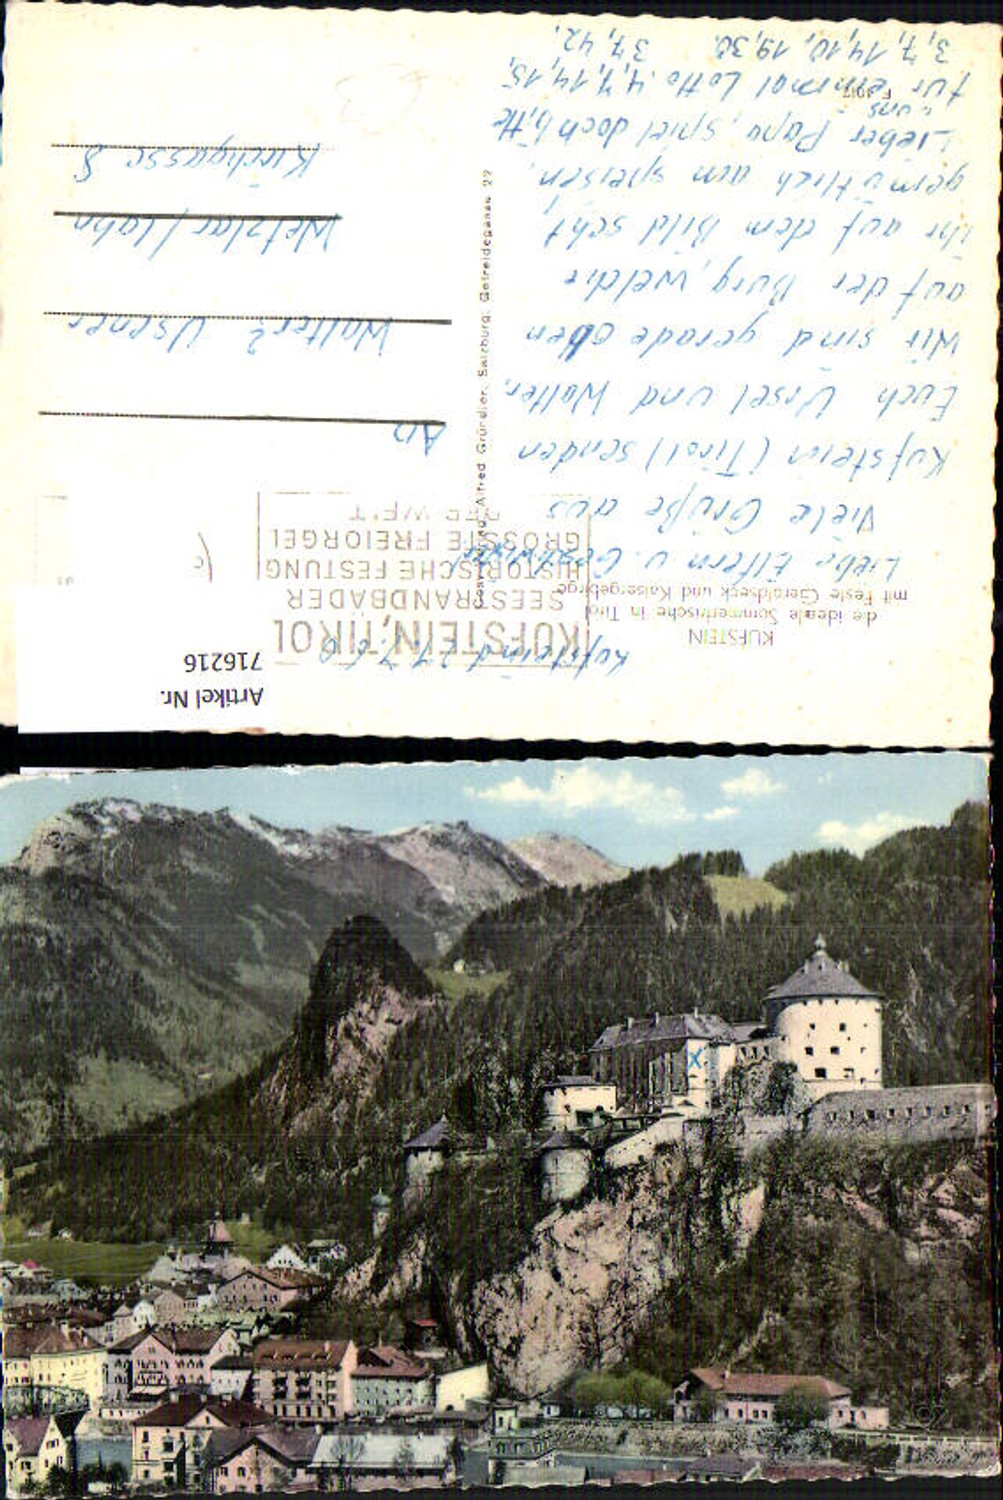 Kufstein d. 27.7.60
KUFSTEIN
die ideale Sommerfrische in Tirol
mit Feste Geroldseck und Kaisergebirge
Liebe Eltern u. Geschwister
Viele Grüße aus
Kufstein (Tirol) senden
Euch Ursel und Walter.
Wir sind gerade oben
auf der Burg, welche
ihr auf dem Bild seht,
gemütlich am speisen.
Lieber Papa, spiel doch bitte
uns
für einmal Lotto 4,7,14,15,
3,7,14,10,19,30. 37,42.
F 4017
Alfred Gründler, Salzburg, Getreidegasse 22
KUFSTEIN, TIROL
SEESTRANDBÄDER
HISTORISCHE FESTUNG
GRÖSSTE FREIORGEL
DER WELT
An
Walter Usener
Wetzlar/Lahn
Kirchgasse 8
Artikel Nr.
716216
X